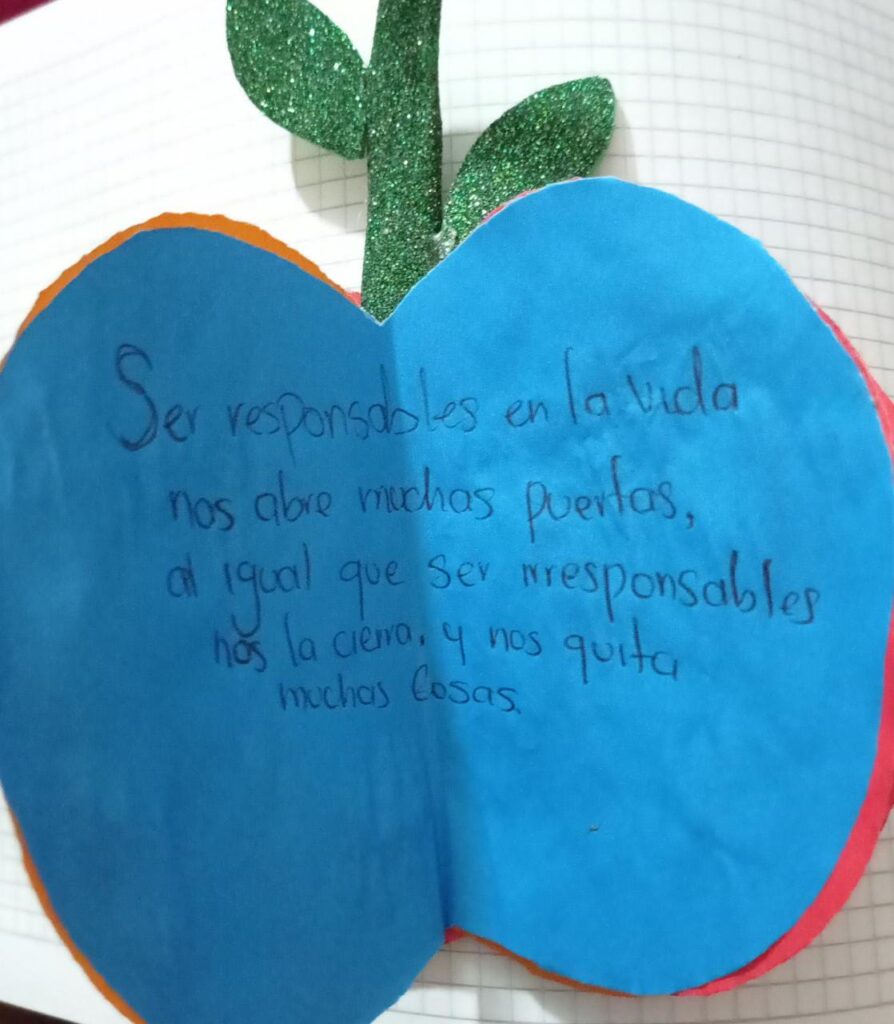 Ser responsables en la vida
nos abre muchas puertas,
al igual que ser irresponsables
nos la cierra, y nos quita
muchas Cosas.